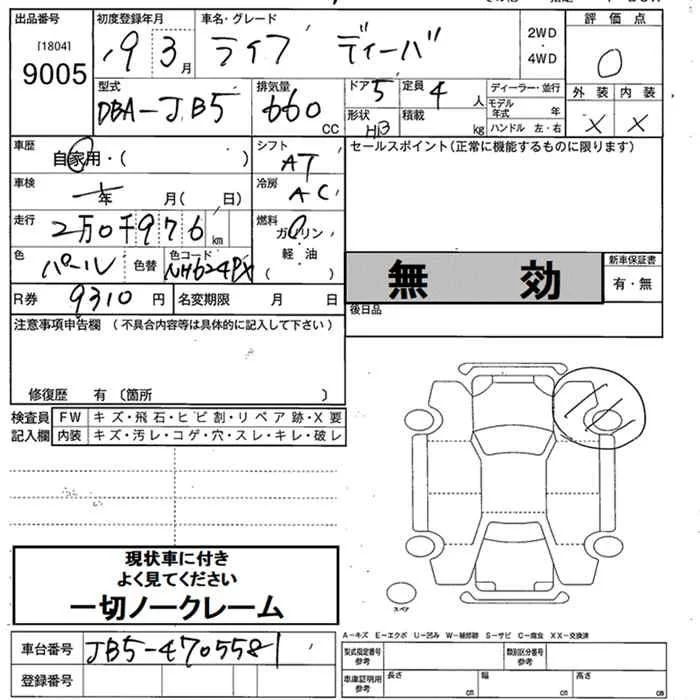 出品番号 初度登録年月 車名・グレード 2WD・4WD 評価点
[1804]
9005 19 3月 ライフ ディーバ 0
型式 排気量 ドア 5 定員 4人 ディーラー・並行 外装 内装
DBA-JB5 660 CC 形状 HB 積載 kg モデル年式 年 ハンドル 左・右 X X
車歴 自家用・( ) シフト AT セールスポイント(正常に機能するものに限ります)
車検 年 月( 日) 冷房 AC
走行 2万0千976km 燃料 ガソリン・軽油( )
色 パール 色替 色コード NH624PX 無効 新車保証書 有・無
R券 9310円 名変期限 月 日 後日品
注意事項申告欄 (不具合内容等は具体的に記入して下さい)
修復歴 有 (箇所 )
検査員 FW キズ・飛石・ヒビ割・リペア跡・X要
記入欄 内装 キズ・汚レ・コゲ・穴・スレ・キレ・破レ
現状車に付き
よく見てください
一切ノークレーム
スペア
A-キズ E-エクボ U-凹み W-補修跡 S-サビ C-腐食 XX-交換済
車台番号 JB5-4705581 型式指定番号 参考 類別区分番号 参考
登録番号 車庫証明用 参考 長さ cm 幅 cm 高さ cm